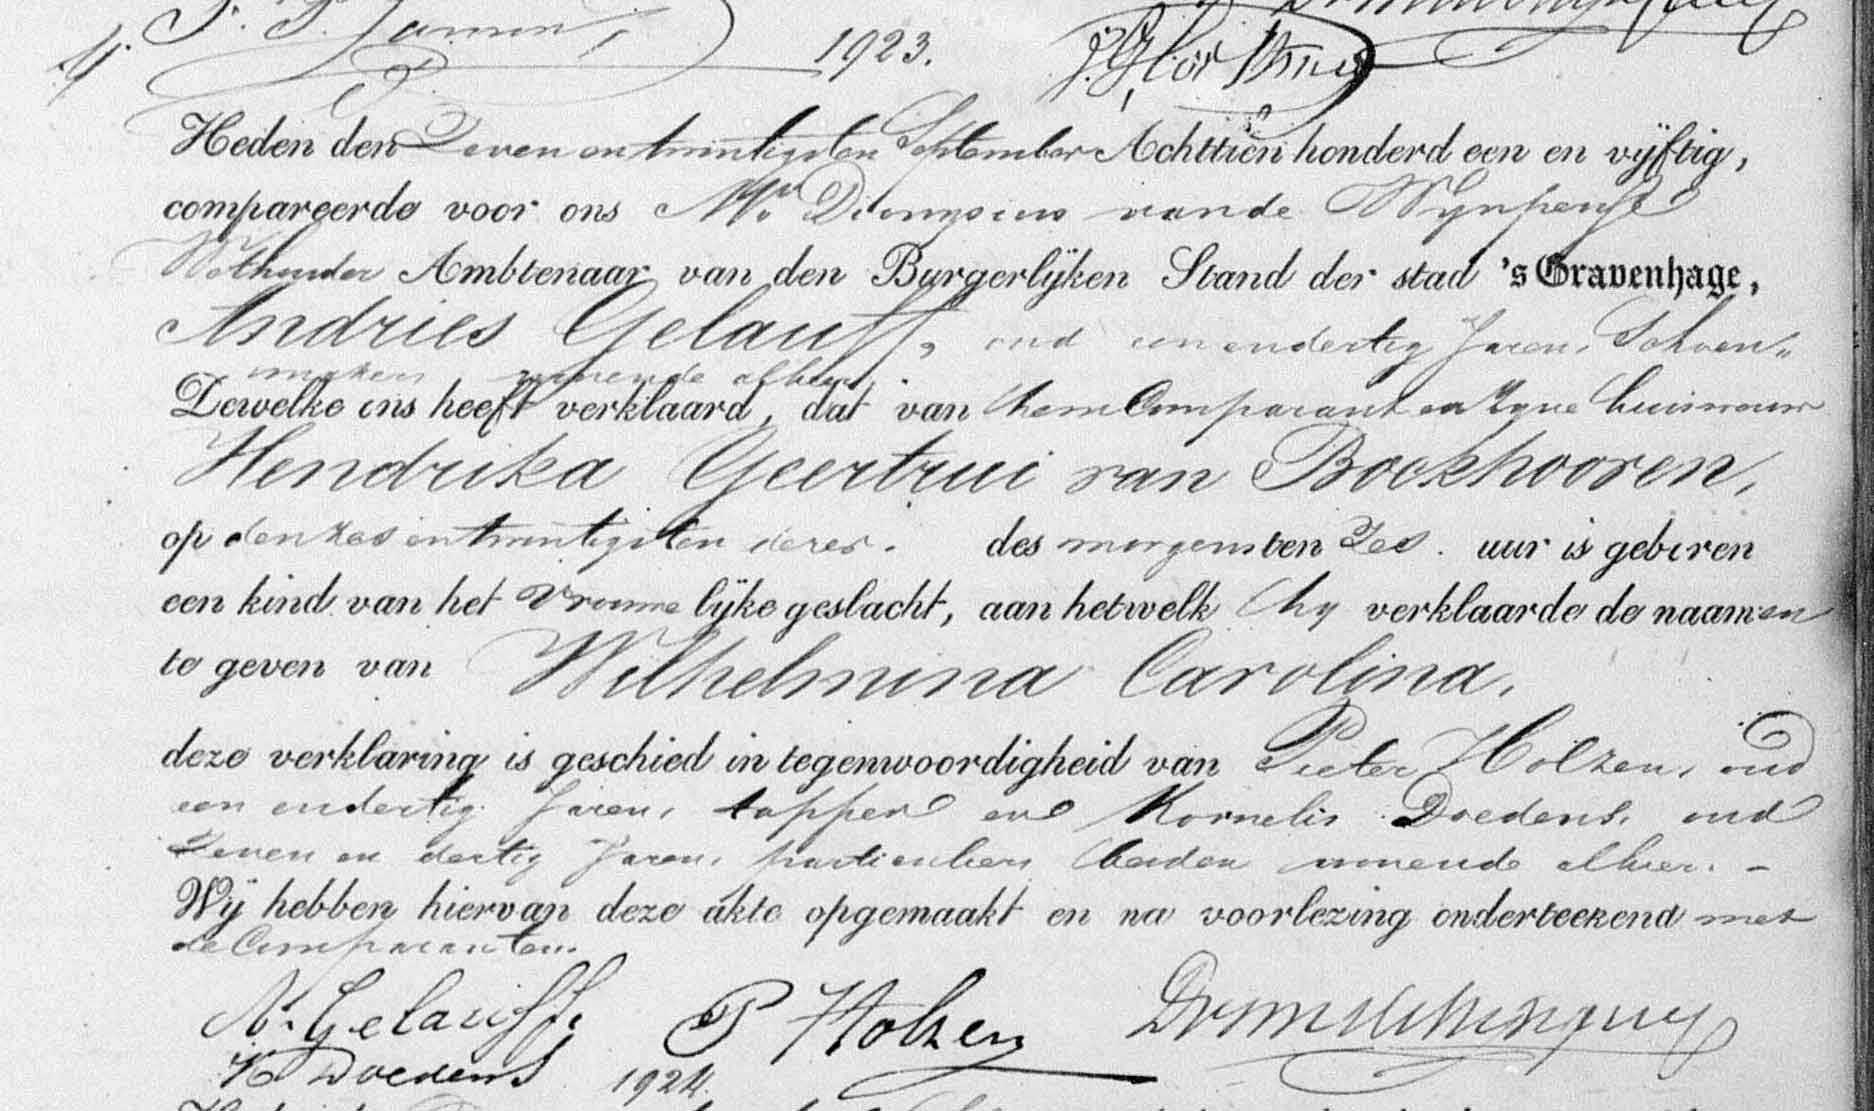 1923.
Heden den Zeven en twintigsten September Achttien honderd een en vijftig,
compareerde voor ons Mr. Dionysius van de Wijnpersse
Wethouder Ambtenaar van den Burgerlijken Stand der stad 's Gravenhage,
Andries Gelauff, oud een en dertig Jaren, Schoen„
maker, wonende alhier.
Dewelke ons heeft verklaard, dat van hem Comparant en Zijne huisvrouw
Hendrika Geertrui van Bockhooren,
op den zes en twintigsten dezer. des morgens ten Zes. uur is geboren
een kind van het Vrouwelijke geslacht, aan hetwelk hij verklaarde de naamen
te geven van Wilhelmina Carolina.
deze verklaring is geschied in tegenwoordigheid van Pieter Holzen, oud
een en dertig Jaren, tapper en Kornelis Doedens, oud
Zeven en dertig Jaren, particulier, beiden wonende alhier. -
Wij hebben hiervan deze akte opgemaakt en na voorlezing onderteekend met
de Comparanten.
A. Gelauff. P Holzen
K Doedens 1924.